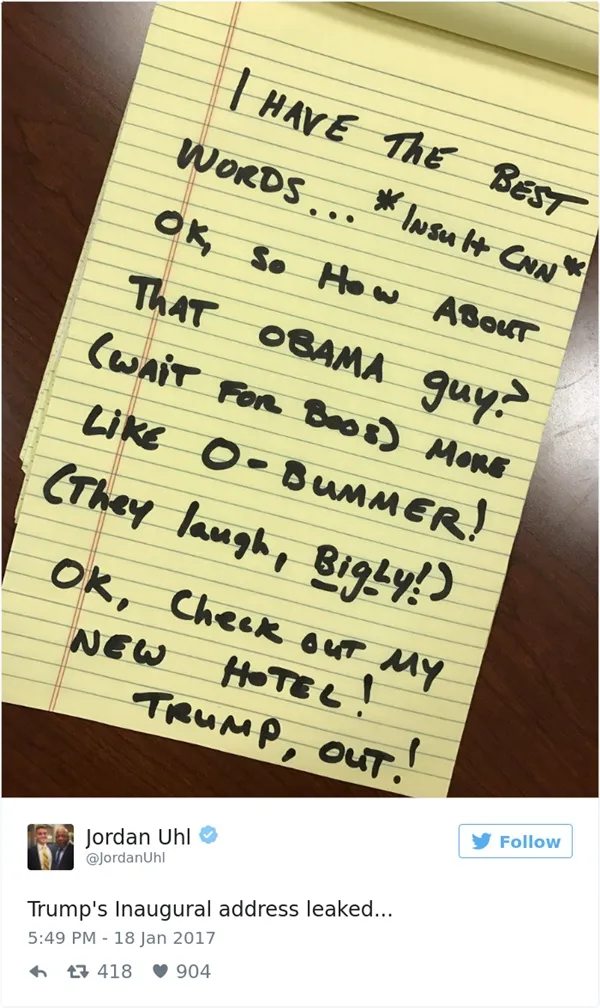 I HAVE THE BEST
WORDS... *INSULT CNN*
OK, SO HOW ABOUT
THAT OBAMA guy?
(WAIT FOR BOOS) MORE
LIKE O-BUMMER!
(They laugh, BigLy!)
OK, Check OUT MY
NEW HOTEL!
TRUMP, OUT.!
Jordan Uhl
@JordanUhl
Follow
Trump's Inaugural address leaked...
5:49 PM - 18 Jan 2017
418 904